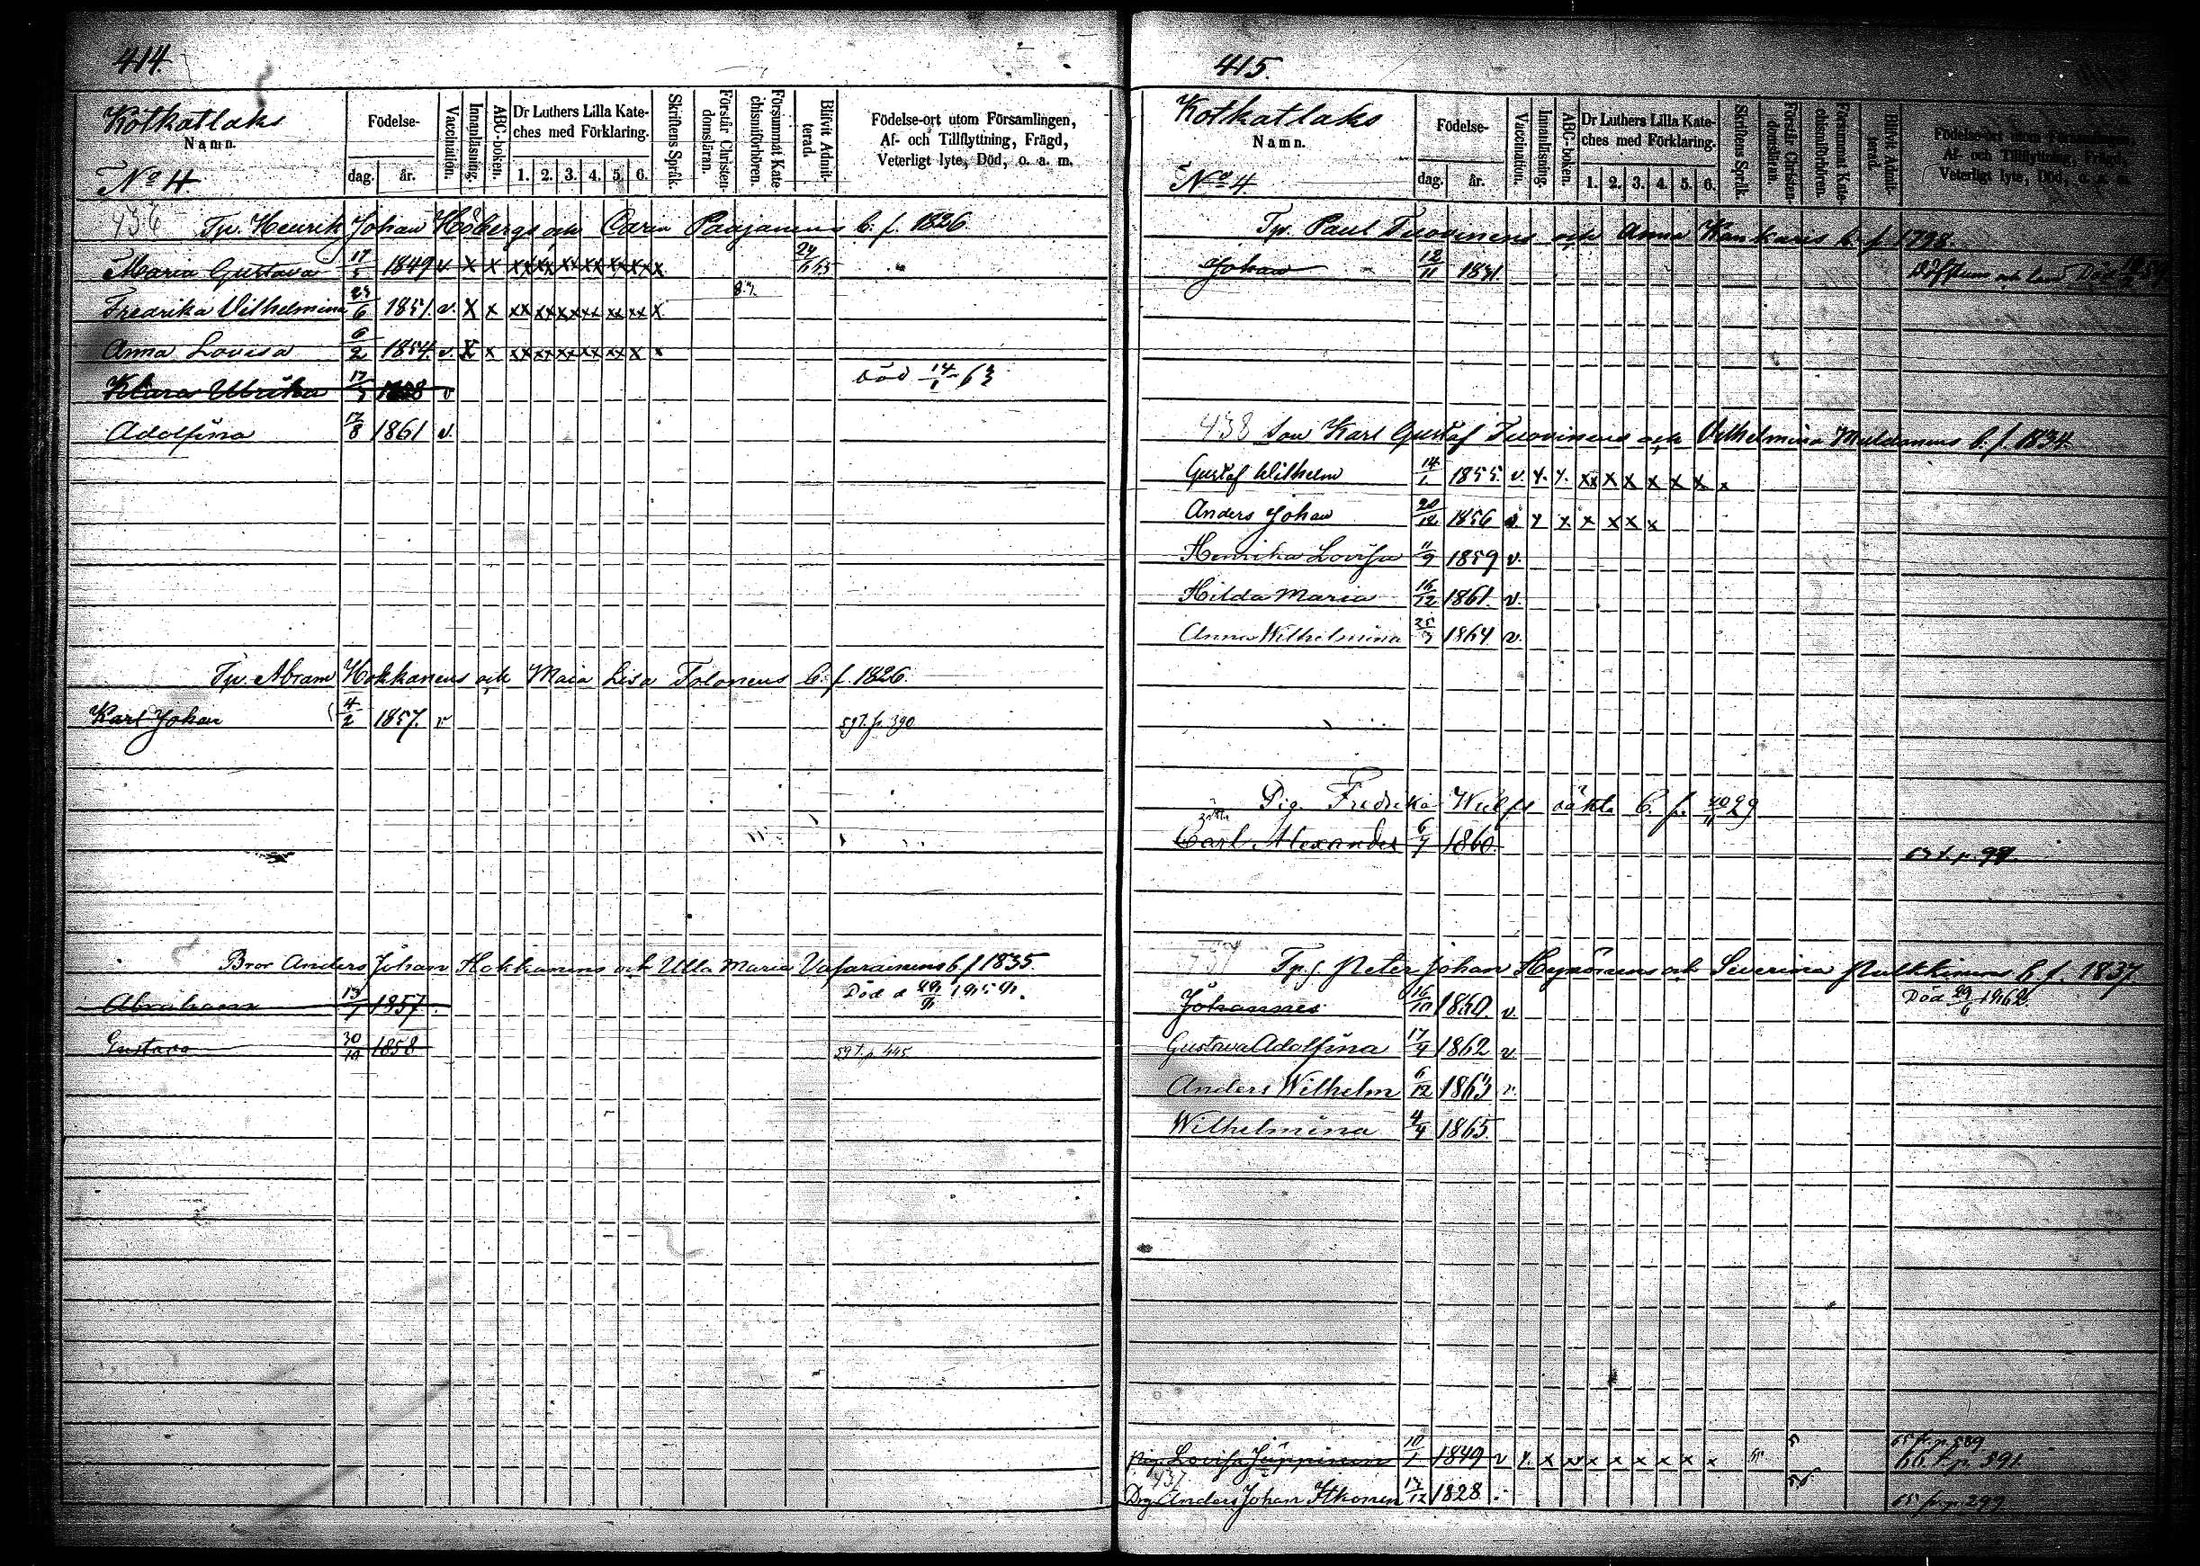 414.
Kotkatlaks
Namn.
No 4
Födelse-
dag. år.
Vaccination.
Innanläsning.
ABC-boken.
Dr Luthers Lilla Kate-
ches med Förklaring.
1. 2. 3. 4. 5. 6.
Skriftens Språk.
Förstår Christen-
domsläran.
Försummat Kate-
chismiförhören.
Blifvit Admit-
terad.
Födelse-ort utom Församlingen,
Af- och Tillflyttning, Frägd,
Veterligt lyte, Död, o. a. m.
436 Tp. Henrik Johan Höbergs och Carin Paajanens b. f. 1826.
Maria Gustava 17/5 1849 v x x xx xx xx xx xx xx x 24/6 65
Fredrika Vilhelmina 23/6 1851. v. x x xx xx xx xx xx xx x
Anna Lovisa 6/2 1854. v. x x xx xx xx xx xx x x
Klara Ulrika 17/3 1858 v Död 14/1 63
Adolfina 17/8 1861 v.
Tp. Abram Hokkanens och Maia Lisa Tolonens b. f. 1826.
Karl Johan 4/2 1857. v 59 t. p. 390
Bror Anders Johan Hokkanens och Ulla Maria b f 1835.
Abraham 13/7 1857.
Gustava 30/10 1858 59 t. p. 445
415.
Kotkatlaks
Namn.
No 4
Födelse-
dag. år.
Vaccination.
Innanläsning.
ABC-boken.
Dr Luthers Lilla Kate-
ches med Förklaring.
1. 2. 3. 4. 5. 6.
Skriftens Språk.
Förstår Christen-
domsläran.
Försummat Kate-
chismiförhören.
Blifvit Admit-
terad.
Födelse-ort utom Församlingen,
Af- och Tillflyttning, Frägd,
Veterligt lyte, Död, o. a. m.
Tp. Paul Tuovinens och Anna Kankaris b. f. 1798.
Johan 12/11 1831. Död
438 Son Karl Gustaf Tuovinens och Vilhelmina Muldanens b. f. 1834.
Gustaf Wilhelm 14/1 1855. v. x. x. xx x x x x x x
Anders Johan 20/12 1856 v. x x x x x x
Henrika Lovisa 11/9 1859 v.
Hilda Maria 16/12 1861. v.
Anna Wilhelmina 25/3 1864. v.
Pig. Fredrika Wulfs oäkta b. f. 29
Carl Alexander 6/7 1860. 63 t. p. 94.
Tp. Peter Johan Hynönens och Severina Pulkkinens b. f. 1837.
Johannes 16/10 1860. v. Död 29/6 1862.
Gustava Adolfina 17/4 1862 v.
Anders Wilhelm 6/12 1863 v.
Wilhelmina 4/4 1865.
Pig. Lovisa Jäppinen 10/1 1849 v x. x xx x x x x x x
65 fr. p. 589
66. t. p. 391.
437
Drg Anders Johan Itkonen 13/12 1828. 65 fr. p. 299